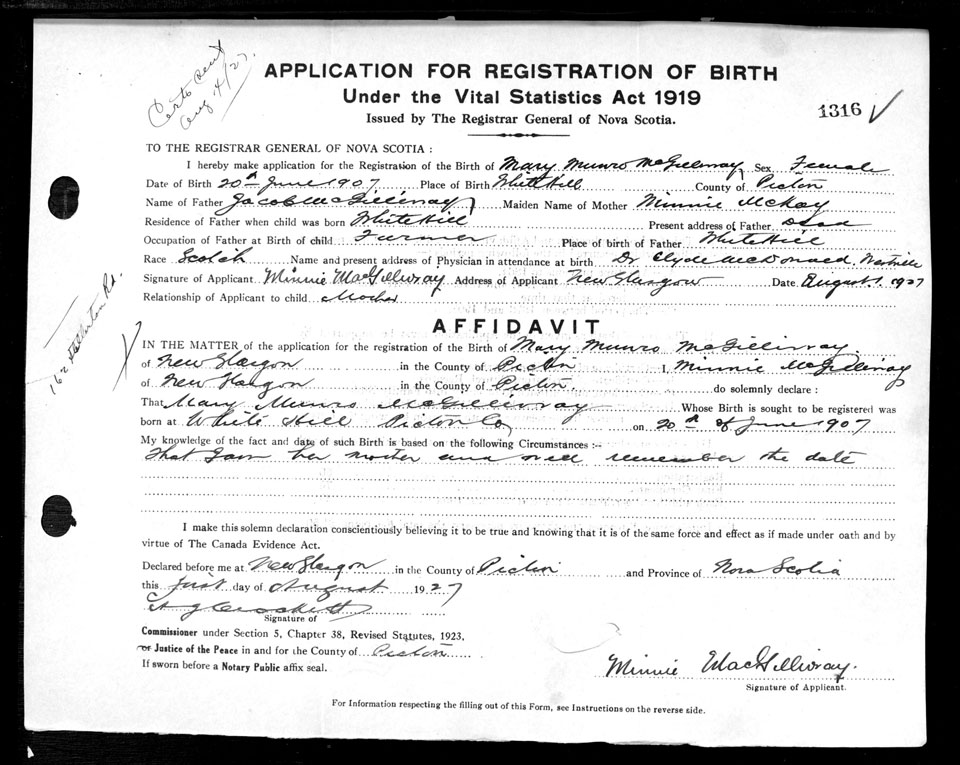 Certs sent
Aug 4/27.
APPLICATION FOR REGISTRATION OF BIRTH
Under the Vital Statistics Act 1919
Issued by The Registrar General of Nova Scotia.
1316 ✓
TO THE REGISTRAR GENERAL OF NOVA SCOTIA :
I hereby make application for the Registration of the Birth of Mary Munro McGillivray Sex Female
Date of Birth 20th June 1907 Place of Birth White Hill County of Pictou
Name of Father Jacob McGillivray Maiden Name of Mother Minnie McKay
Residence of Father when child was born White Hill Present address of Father Dead
Occupation of Father at Birth of child Farmer Place of birth of Father White Hill
Race Scotch Name and present address of Physician in attendance at birth Dr Clyde McDonald,
Signature of Applicant Minnie MacGillivray Address of Applicant New Glasgow Date August 1. 1927
Relationship of Applicant to child Mother
162 Stellarton Rd.
AFFIDAVIT
IN THE MATTER of the application for the registration of the Birth of Mary Munro McGillivray
of New Glasgow in the County of Pictou I, Minnie McGillivray
of New Glasgow in the County of Pictou do solemnly declare :
That Mary Munro McGillivray Whose Birth is sought to be registered was
born at White Hill Pictou Co on 20th of June 1907
My knowledge of the fact and date of such Birth is based on the following Circumstances :-
That I am her mother and well remember the date
I make this solemn declaration conscientiously believing it to be true and knowing that it is of the same force and effect as if made under oath and by
virtue of The Canada Evidence Act.
Declared before me at New Glasgow in the County of Pictou and Province of Nova Scotia
this first day of August 1927
Crockett
Signature of
Commissioner under Section 5, Chapter 38, Revised Statutes, 1923,
or Justice of the Peace in and for the County of Pictou
If sworn before a Notary Public affix seal.
Minnie MacGillivray.
Signature of Applicant.
For Information respecting the filling out of this Form, see Instructions on the reverse side.